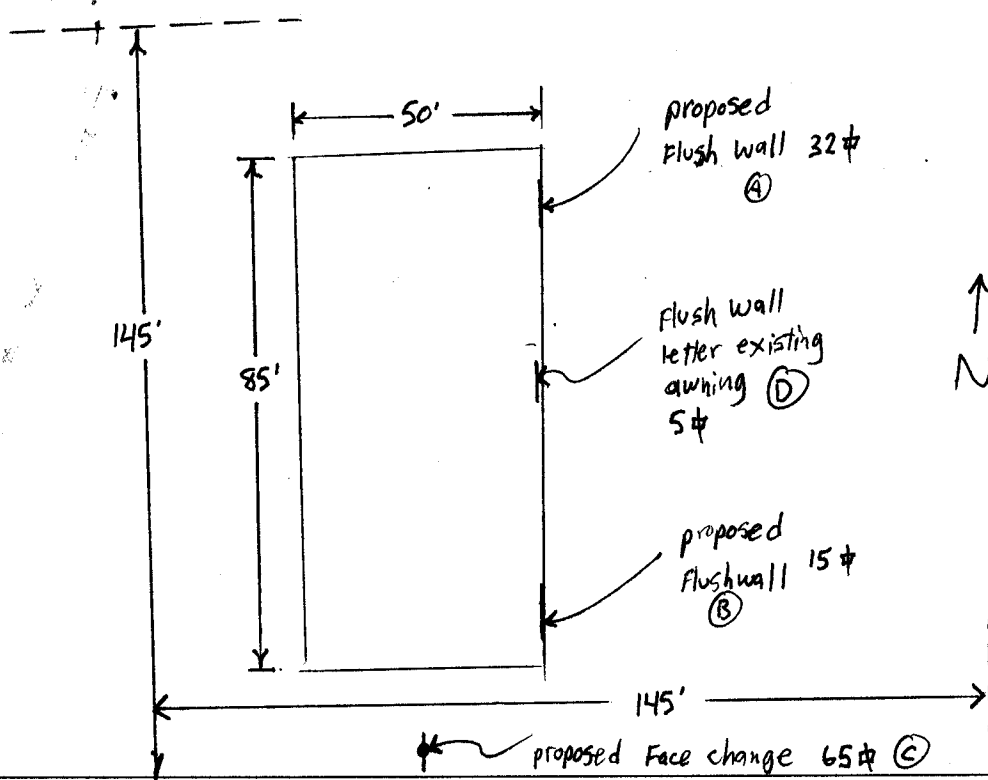 50'
proposed
Flush wall 32⌗
A
145'
85'
Flush wall
letter existing
awning D
5⌗
N
proposed
Flushwall 15⌗
B
145'
proposed Face change 65⌗ C